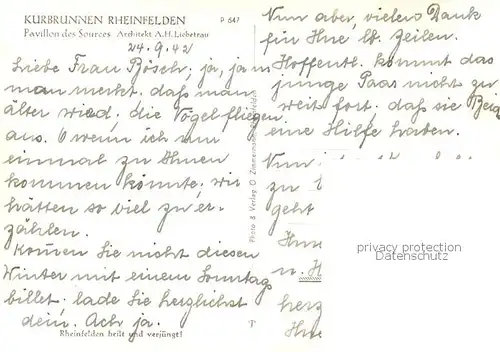 KURBRUNNEN RHEINFELDEN P 647
Pavillon des Sources Architekt A.H. Liebetrau
24.9.42
Liebe Frau Bösch, ja, ja
man merkt, daß man
älter wird; die Vögel fliegen
aus. O wenn ich nur
einmal zu Ihnen
kommen könnte, wir
hätten so viel zu er-
zählen.
Können Sie nicht diesen
Winter mit einem Sonntags
billet. lade Sie herzlichst
dein. Ach ja.
Rheinfelden heilt und verjüngt!
Photo & Verlag O. Zimmermann
Nun aber, vielen Dank
für Ihre lb. Zeilen.
Hoffentl. kommt das
junge Paar nicht zu
weit fort, daß sie
eine Hilfe haben.
Nun
zu
geht
Ihnen
u.
herz
Ihre
privacy protection
Datenschutz